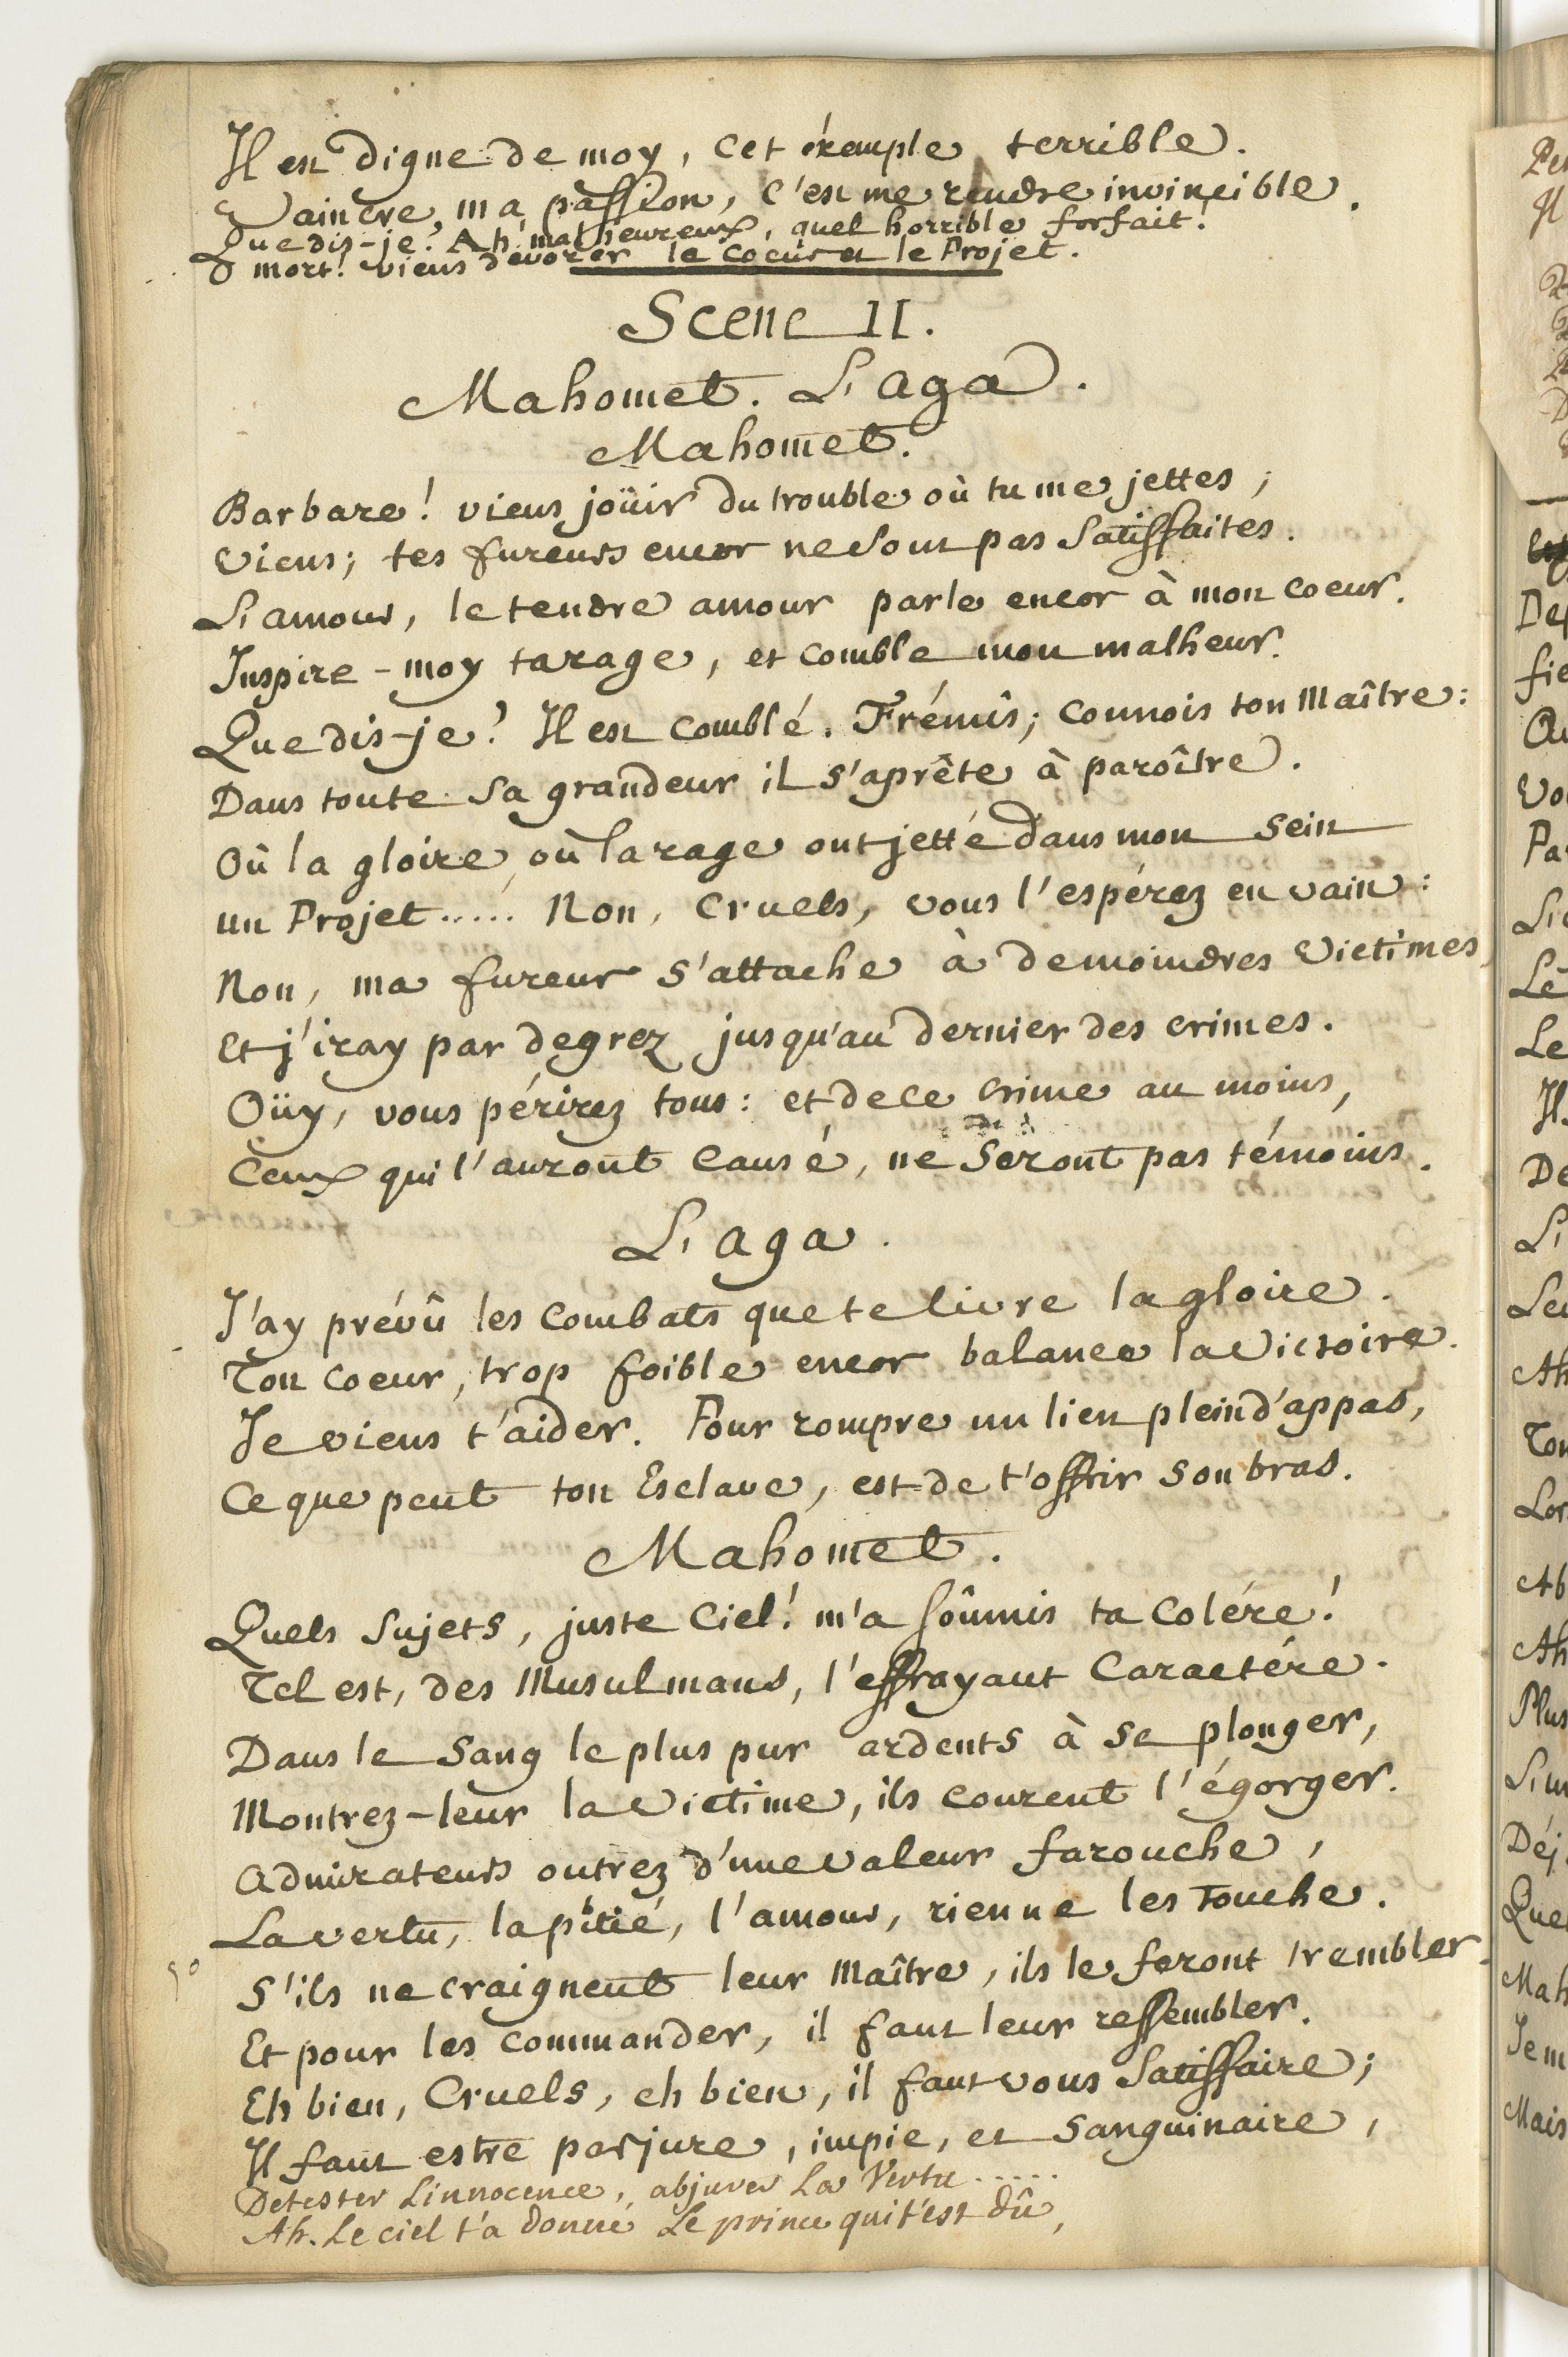 Il est digne de moy, cet éxemple terrible.
Vaincre ma passion, c'est me rendre invincible.
Que dis-je? Ah! malheureux, quel horrible forfait!
O mort! viens dévorer le coeur et le Projet.
Scene II.
Mahomet. L'aga.
Mahomet.
Barbare! viens joüir du trouble où tu me jettes;
Viens; tes fureurs encor ne sont pas satisfaites.
L'amour, le tendre amour parle encor à mon coeur.
Inspire-moy ta rage, et comble mon malheur.
Que dis-je? Il est comblé. Frémis; connois ton Maître:
Dans toute sa grandeur il s'aprête à paroître.
Où la gloire, où la rage ont jetté dans mon sein
un Projet..... Non, Cruels, vous l'espérez en vain:
Non, ma fureur s'attache à de moindres Victimes,
Et j'iray par degrez jusqu'au dernier des crimes.
Oüy, vous périrez tous: et de ce crime au moins,
Ceux qui l'auront causé, ne seront pas témoins.
L'aga.
J'ay prévû les combats que te livre la gloire.
Ton coeur, trop foible encor balance la Victoire.
Je viens t'aider. Pour rompre un lien plein d'appas,
Ce que peut ton Esclave, est de t'offrir son bras.
Mahomet.
Quels sujets, juste Ciel! m'a soûmis ta colére!
Tel est, des Musulmans, l'effrayant Caractére.
Dans le sang le plus pur ardents à se plonger,
Montrez-leur la Victime, ils courent l'égorger.
Admirateurs outrez d'une valeur farouche,
La vertu, la pitié, l'amour, rien ne les touche.
S'ils ne craignent leur Maître, ils le feront trembler.
Et pour les commander, il faut leur ressembler.
Eh bien, Cruels, eh bien, il faut vous satisfaire;
Il faut estre parjure, impie, et sanguinaire,
Detester Linnocence, abjurer La Vertu.....
Ah. Le ciel t'a donné Le prince qui t'est dû,